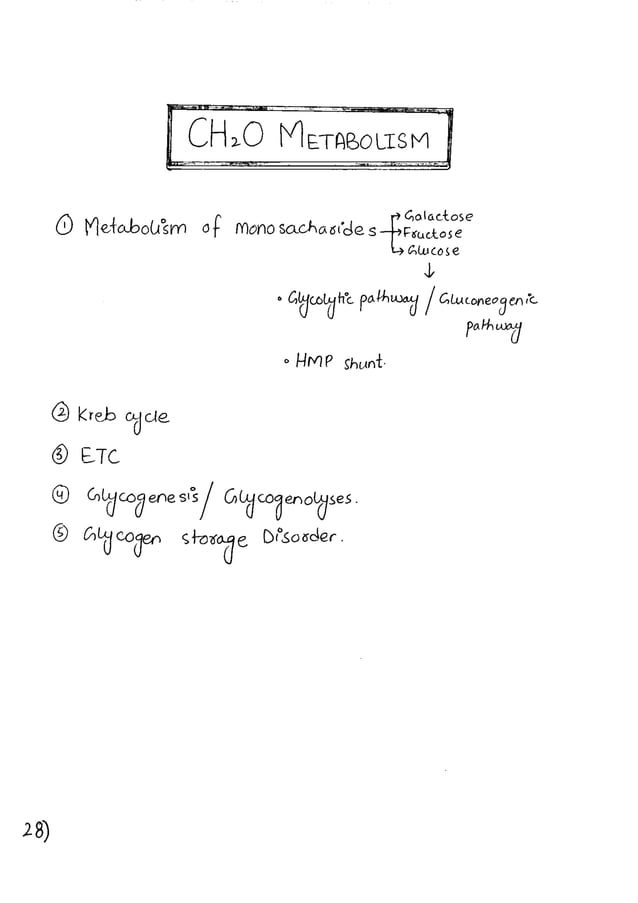 CH₂O METABOLISM
① Metabolism of monosacharides → Galactose
→ Fructose
→ Glucose
↓
• Glycolytic pathway / Gluconeogenic
pathway
• HMP shunt.
② Kreb cycle
③ ETC
④ Glycogenesis / Glycogenolyses.
⑤ Glycogen storage Disorder.
28)